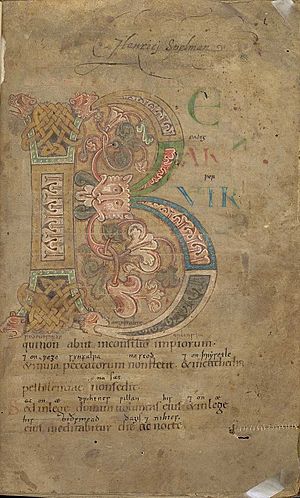 Henrici Spelman
B E
eadig
AT
wer
VIR
qui non abiit inconsilio impiorum.
7 on wege synfulra ne stod 7 on
&inuia peccatorum nonstetit. &incathedra
na sæt
pestilentiae nonsedit.
ac on æ willan his 7 on æ
sed inlege domini uoluntas eius &inlege
his dæg 7 nihtes
eius meditabitur die ac nocte.